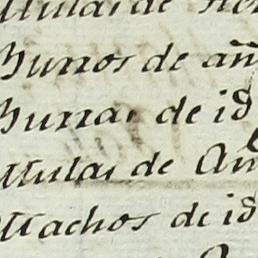 Mulas de
Burros de añ
Burras de id
Mulas de Añ
Machos de id